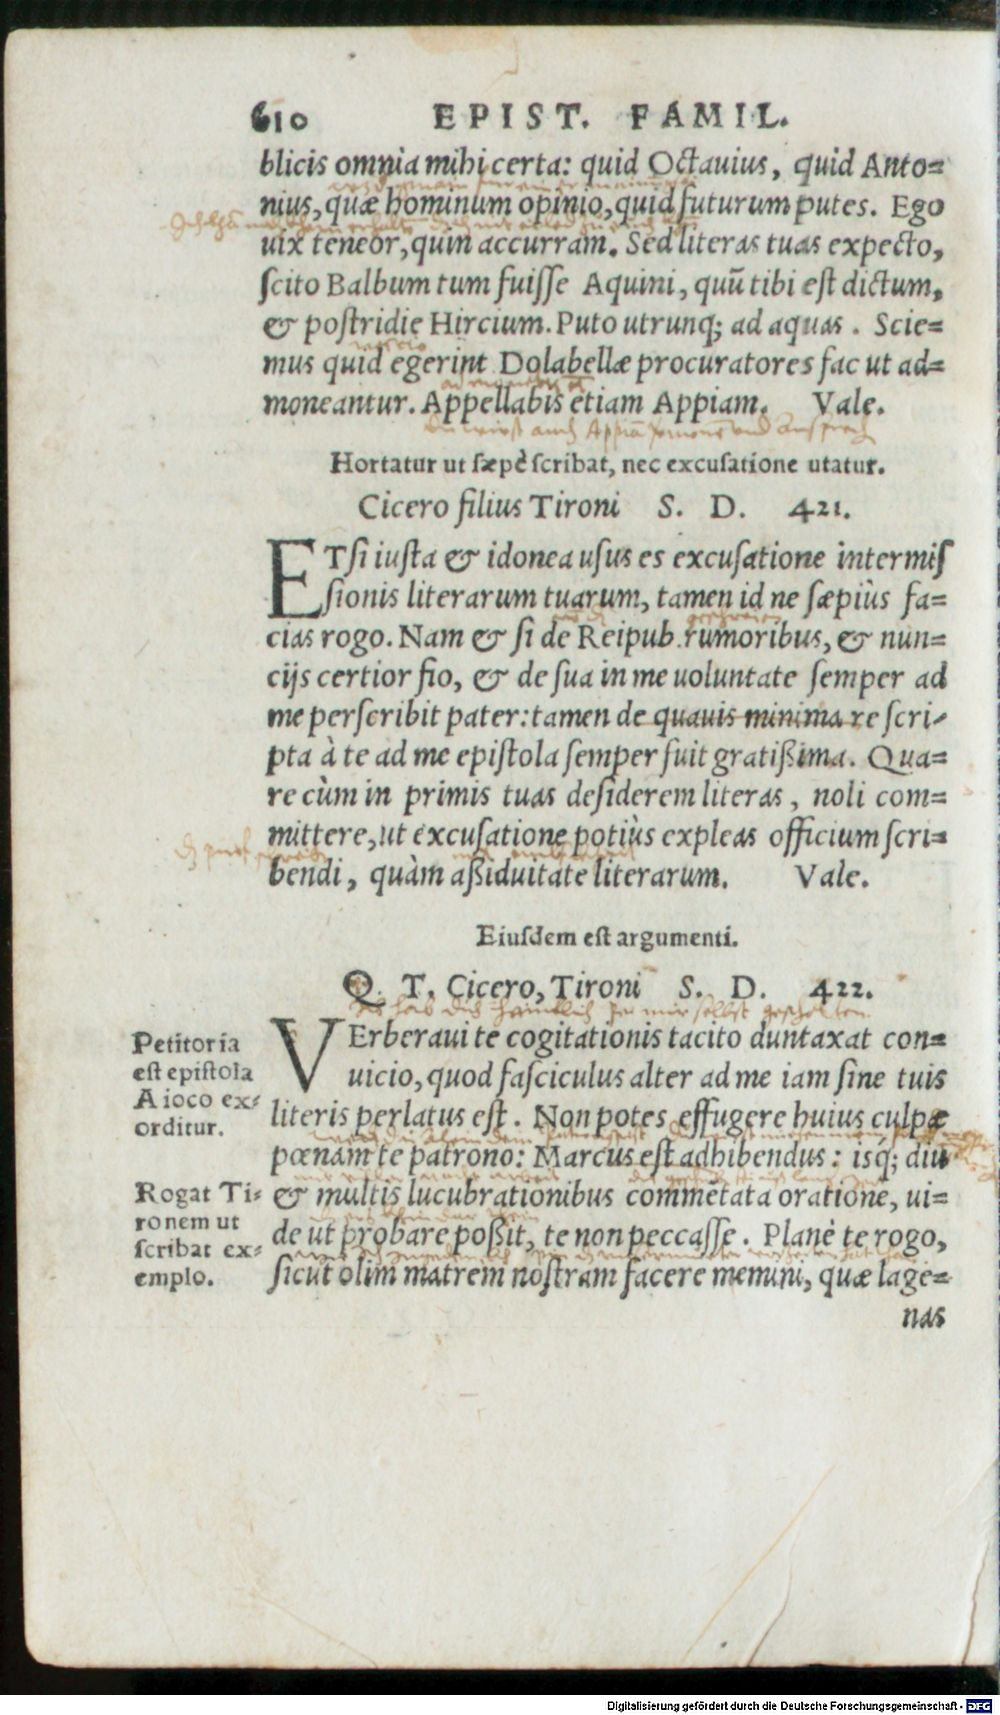 610 EPIST. FAMIL.
blicis omnia mihi certa: quid Octauius, quid Anto=
nius, quæ hominum opinio, quid futurum putes. Ego
uix teneor, quin accurram. Sed literas tuas expecto,
ſcito Balbum tum fuiſſe Aquini, quū tibi eſt dictum,
& poſtridie Hircium. Puto utrunq; ad aquas. Scie=
mus quid egerint Dolabellæ procuratores fac ut ad=
moneantur. Appellabis etiam Appiam. Vale.
Hortatur ut ſæpè ſcribat, nec excuſatione utatur.
Cicero filius Tironi S. D. 421.
ETſi iuſta & idonea uſus es excuſatione intermiſ
ſionis literarum tuarum, tamen id ne ſæpiùs fa=
cias rogo. Nam & ſi de Reipub. rumoribus, & nun=
cijs certior fio, & de ſua in me uoluntate ſemper ad
me perſcribit pater: tamen de quauis minima re ſcri-
pta à te ad me epiſtola ſemper fuit gratißima. Qua=
re cùm in primis tuas deſiderem literas, noli com=
mittere, ut excuſatione potiùs expleas officium ſcri=
bendi, quàm aßiduitate literarum. Vale.
Eiuſdem eſt argumenti.
Q. T. Cicero, Tironi S. D. 422.
Petitoria
eſt epiſtola
A ioco ex=
orditur.
VErberaui te cogitationis tacito duntaxat con=
uicio, quod faſciculus alter ad me iam ſine tuis
literis perlatus eſt. Non potes effugere huius culpæ
pœnam te patrono: Marcus eſt adhibendus: isq́; diu
Rogat Ti=
ronem ut
ſcribat ex=
emplo.
& multis lucubrationibus commẽtata oratione, ui=
de ut probare poßit, te non peccaſſe. Planè te rogo,
ſicut olim matrem noſtram facere memini, quæ lage=
nas
Digitalisierung gefördert durch die Deutsche Forschungsgemeinschaft - DFG